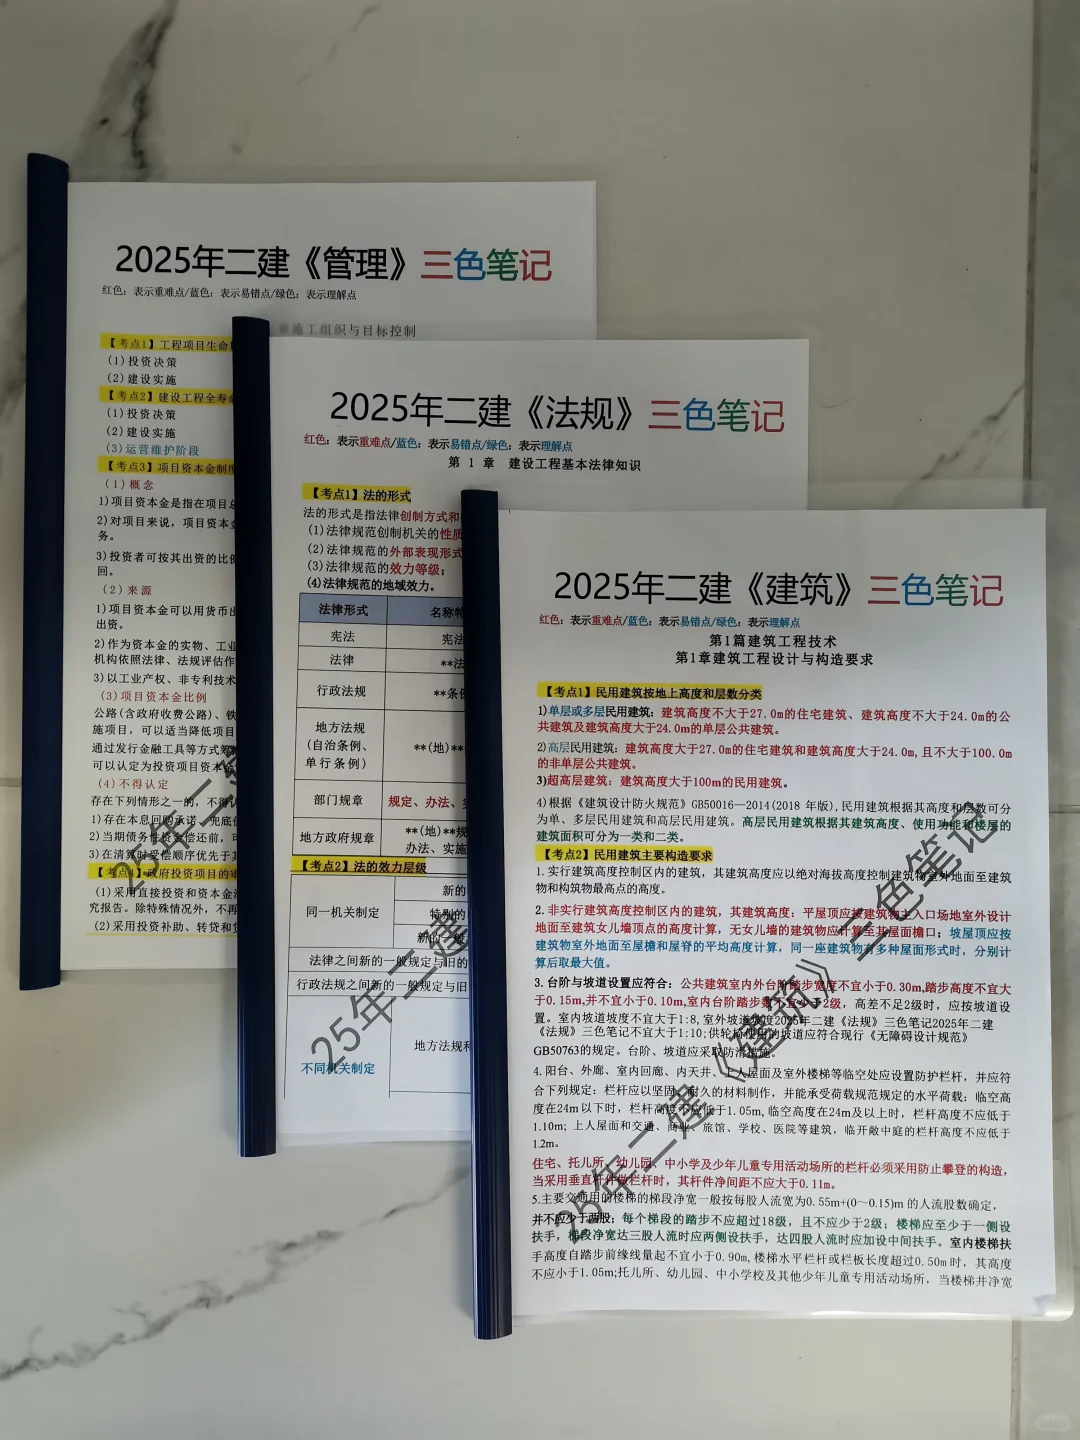 2025年二建《管理》三色笔记
红色：表示重难点/蓝色：表示易错点/绿色：表示理解点
施工组织与目标控制
【考点1】工程项目生命
(1)投资决策
(2)建设实施
【考点2】建设工程全寿命
(1)投资决策
(2)建设实施
(3)运营维护阶段
【考点3】项目资本金制度
(1)概念
1)项目资本金是指在项目总
2)对项目来说，项目资本金
务。
3)投资者可按其出资的比例
回。
(2)来源
1)项目资本金可以用货币出
出资。
2)作为资本金的实物、工业
机构依照法律、法规评估作
3)以工业产权、非专利技术
(3)项目资本金比例
公路(含政府收费公路)、铁
施项目，可以适当降低项目
通过发行金融工具等方式筹
可以认定为投资项目资本金
(4)不得认定
存在下列情形之一的，不得认
1)存在本息回购承诺、兜底
2)当期债务性资金偿还前，可
3)在清算时受偿顺序优先于其
【考点4】政府投资项目的审
(1)采用直接投资和资本金注
究报告。除特殊情况外，不再
(2)采用投资补助、转贷和贷
25年二建
2025年二建《法规》三色笔记
红色：表示重难点/蓝色：表示易错点/绿色：表示理解点
第 1 章 建设工程基本法律知识
【考点1】法的形式
法的形式是指法律创制方式和
(1)法律规范创制机关的性质
(2)法律规范的外部表现形式
(3)法律规范的效力等级；
(4)法律规范的地域效力。
法律形式 名称特
宪法 宪法
法律 **法
行政法规 **条例
地方法规
(自治条例、
单行条例) **(地)**
部门规章 规定、办法、
地方政府规章 **(地)**规
办法、实施
【考点2】法的效力层级
同一机关制定 新的
特别的
新的一般
法律之间新的一般规定与旧的
行政法规之间新的一般规定与旧
不同机关制定 地方法规和
25年二建
2025年二建《建筑》三色笔记
红色：表示重难点/蓝色：表示易错点/绿色：表示理解点
第1篇建筑工程技术
第1章建筑工程设计与构造要求
【考点1】民用建筑按地上高度和层数分类
1)单层或多层民用建筑：建筑高度不大于27.0m的住宅建筑、建筑高度不大于24.0m的公
共建筑及建筑高度大于24.0m的单层公共建筑。
2)高层民用建筑：建筑高度大于27.0m的住宅建筑和建筑高度大于24.0m,且不大于100.0m
的非单层公共建筑。
3)超高层建筑：建筑高度大于100m的民用建筑。
4)根据《建筑设计防火规范》GB50016—2014(2018 年版),民用建筑根据其高度和层数可分
为单、多层民用建筑和高层民用建筑。高层民用建筑根据其建筑高度、使用功能和楼层的
建筑面积可分为一类和二类。
【考点2】民用建筑主要构造要求
1. 实行建筑高度控制区内的建筑，其建筑高度应以绝对海拔高度控制建筑物室外地面至建筑
物和构筑物最高点的高度。
2. 非实行建筑高度控制区内的建筑，其建筑高度：平屋顶应按建筑物主入口场地室外设计
地面至建筑女儿墙顶点的高度计算，无女儿墙的建筑物应计算至其屋面檐口；坡屋顶应按
建筑物室外地面至屋檐和屋脊的平均高度计算，同一座建筑物有多种屋面形式时，分别计
算后取最大值。
3. 台阶与坡道设置应符合：公共建筑室内外台阶踏步宽度不宜小于0.30m,踏步高度不宜大
于0.15m,并不宜小于0.10m,室内台阶踏步数不宜少于2级，高差不足2级时，应按坡道设
置。室内坡道坡度不宜大于1:8,室外坡道坡度2025年二建《法规》三色笔记2025年二建
《法规》三色笔记不宜大于1:10;供轮椅使用的坡道应符合现行《无障碍设计规范》
GB50763的规定。台阶、坡道应采取防滑措施。
4. 阳台、外廊、室内回廊、内天井、上人屋面及室外楼梯等临空处应设置防护栏杆，并应符
合下列规定：栏杆应以坚固、耐久的材料制作，并能承受荷载规范规定的水平荷载；临空高
度在24m以下时，栏杆高度不应低于1.05m,临空高度在24m及以上时，栏杆高度不应低于
1.10m；上人屋面和交通、商业、旅馆、学校、医院等建筑，临开敞中庭的栏杆高度不应低于
1.2m。
住宅、托儿所、幼儿园、中小学及少年儿童专用活动场所的栏杆必须采用防止攀登的构造，
当采用垂直杆件做栏杆时，其杆件净间距不应大于0.11m。
5.主要交通用的楼梯的梯段净宽一般按每股人流宽为0.55m+(0～0.15)m 的人流股数确定，
并不应少于两股；每个梯段的踏步不应超过18级，且不应少于2级；楼梯应至少于一侧设
扶手，梯段净宽达三股人流时应两侧设扶手，达四股人流时应加设中间扶手。室内楼梯扶
手高度自踏步前缘线量起不宜小于0.90m,楼梯水平栏杆或栏板长度超过0.50m时，其高度
不应小于1.05m;托儿所、幼儿园、中小学校及其他少年儿童专用活动场所，当楼梯井净宽
25年二建《建筑》三色笔记